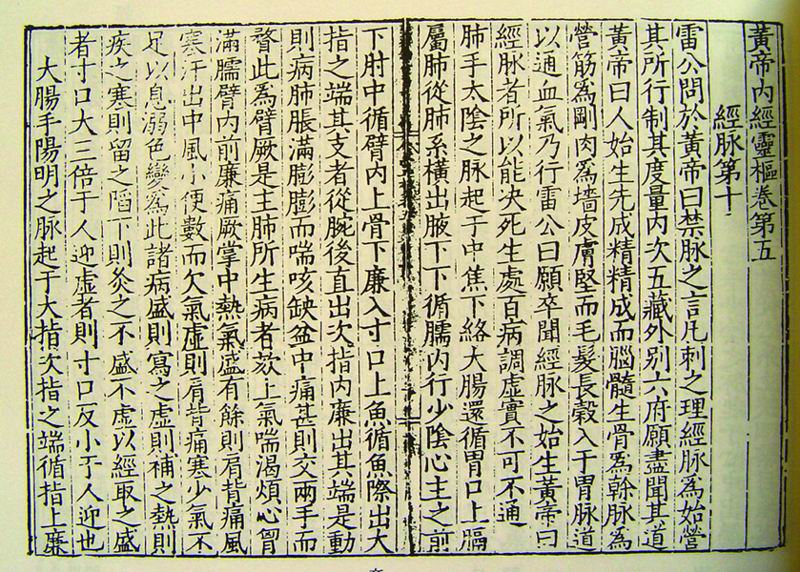 黃帝内經靈樞卷第五
經脉第十
雷公問於黃帝曰禁脉之言凡刺之理經脉爲始營
其所行制其度量内次五藏外别六府願盡聞其道
黃帝曰人始生先成精精成而腦髓生骨爲幹脉爲
營筋爲剛肉爲墻皮膚堅而毛髮長穀入于胃脉道
以通血氣乃行雷公曰願卒聞經脉之始生黃帝曰
經脉者所以能决死生處百病調虛實不可不通
肺手太陰之脉起于中焦下絡大腸還循胃口上膈
屬肺從肺系横出腋下下循臑内行少陰心主之前
下肘中循臂内上骨下廉入寸口上魚循魚際出大
指之端其支者從腕後直出次指内廉出其端是動
則病肺脹滿膨膨而喘咳缺盆中痛甚則交兩手而
瞀此爲臂厥是主肺所生病者欬上氣喘渴煩心胷
滿臑臂内前廉痛厥掌中熱氣盛有餘則肩背痛風
寒汗出中風小便數而欠氣虛則肩背痛寒少氣不
足以息溺色變爲此諸病盛則寫之虛則補之熱則
疾之寒則留之陷下則灸之不盛不虛以經取之盛
者寸口大三倍于人迎虛者則寸口反小于人迎也
大腸手陽明之脉起于大指次指之端循指上廉